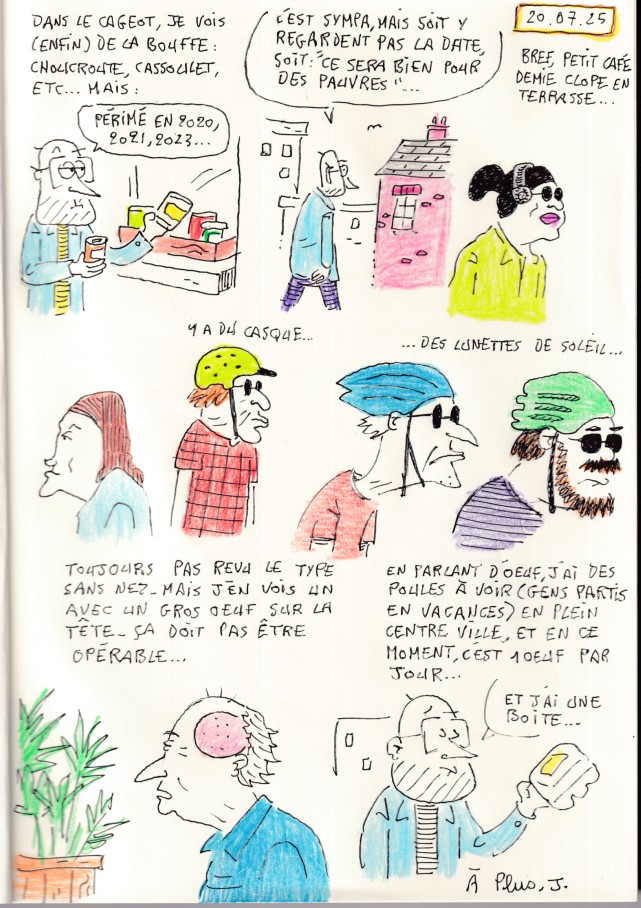 DANS LE CAGEOT, JE VOIS
(ENFIN) DE LA BOUFFE :
CHOUCROUTE, CASSOULET,
ETC... MAIS :
PÉRIMÉ EN 2020,
2021, 2023...
C'EST SYMPA, MAIS SOIT Y
REGARDENT PAS LA DATE,
SOIT : "CE SERA BIEN POUR
DES PAUVRES"...
20.07.25
BREF, PETIT CAFÉ
DEMIE CLOPE EN
TERRASSE...
Y A DU CASQUE...
...DES LUNETTES DE SOLEIL...
TOUJOURS PAS REVU LE TYPE
SANS NEZ_ MAIS J'EN VOIS UN
AVEC UN GROS OEUF SUR LA
TÊTE_ ÇA DOIT PAS ÊTRE
OPÉRABLE...
EN PARLANT D'OEUF, J'AI DES
POULES À VOIR (GENS PARTIS
EN VACANCES) EN PLEIN
CENTRE VILLE, ET EN CE
MOMENT, C'EST 1 OEUF PAR
JOUR...
ET J'AI UNE
BOITE...
À Plus, J.